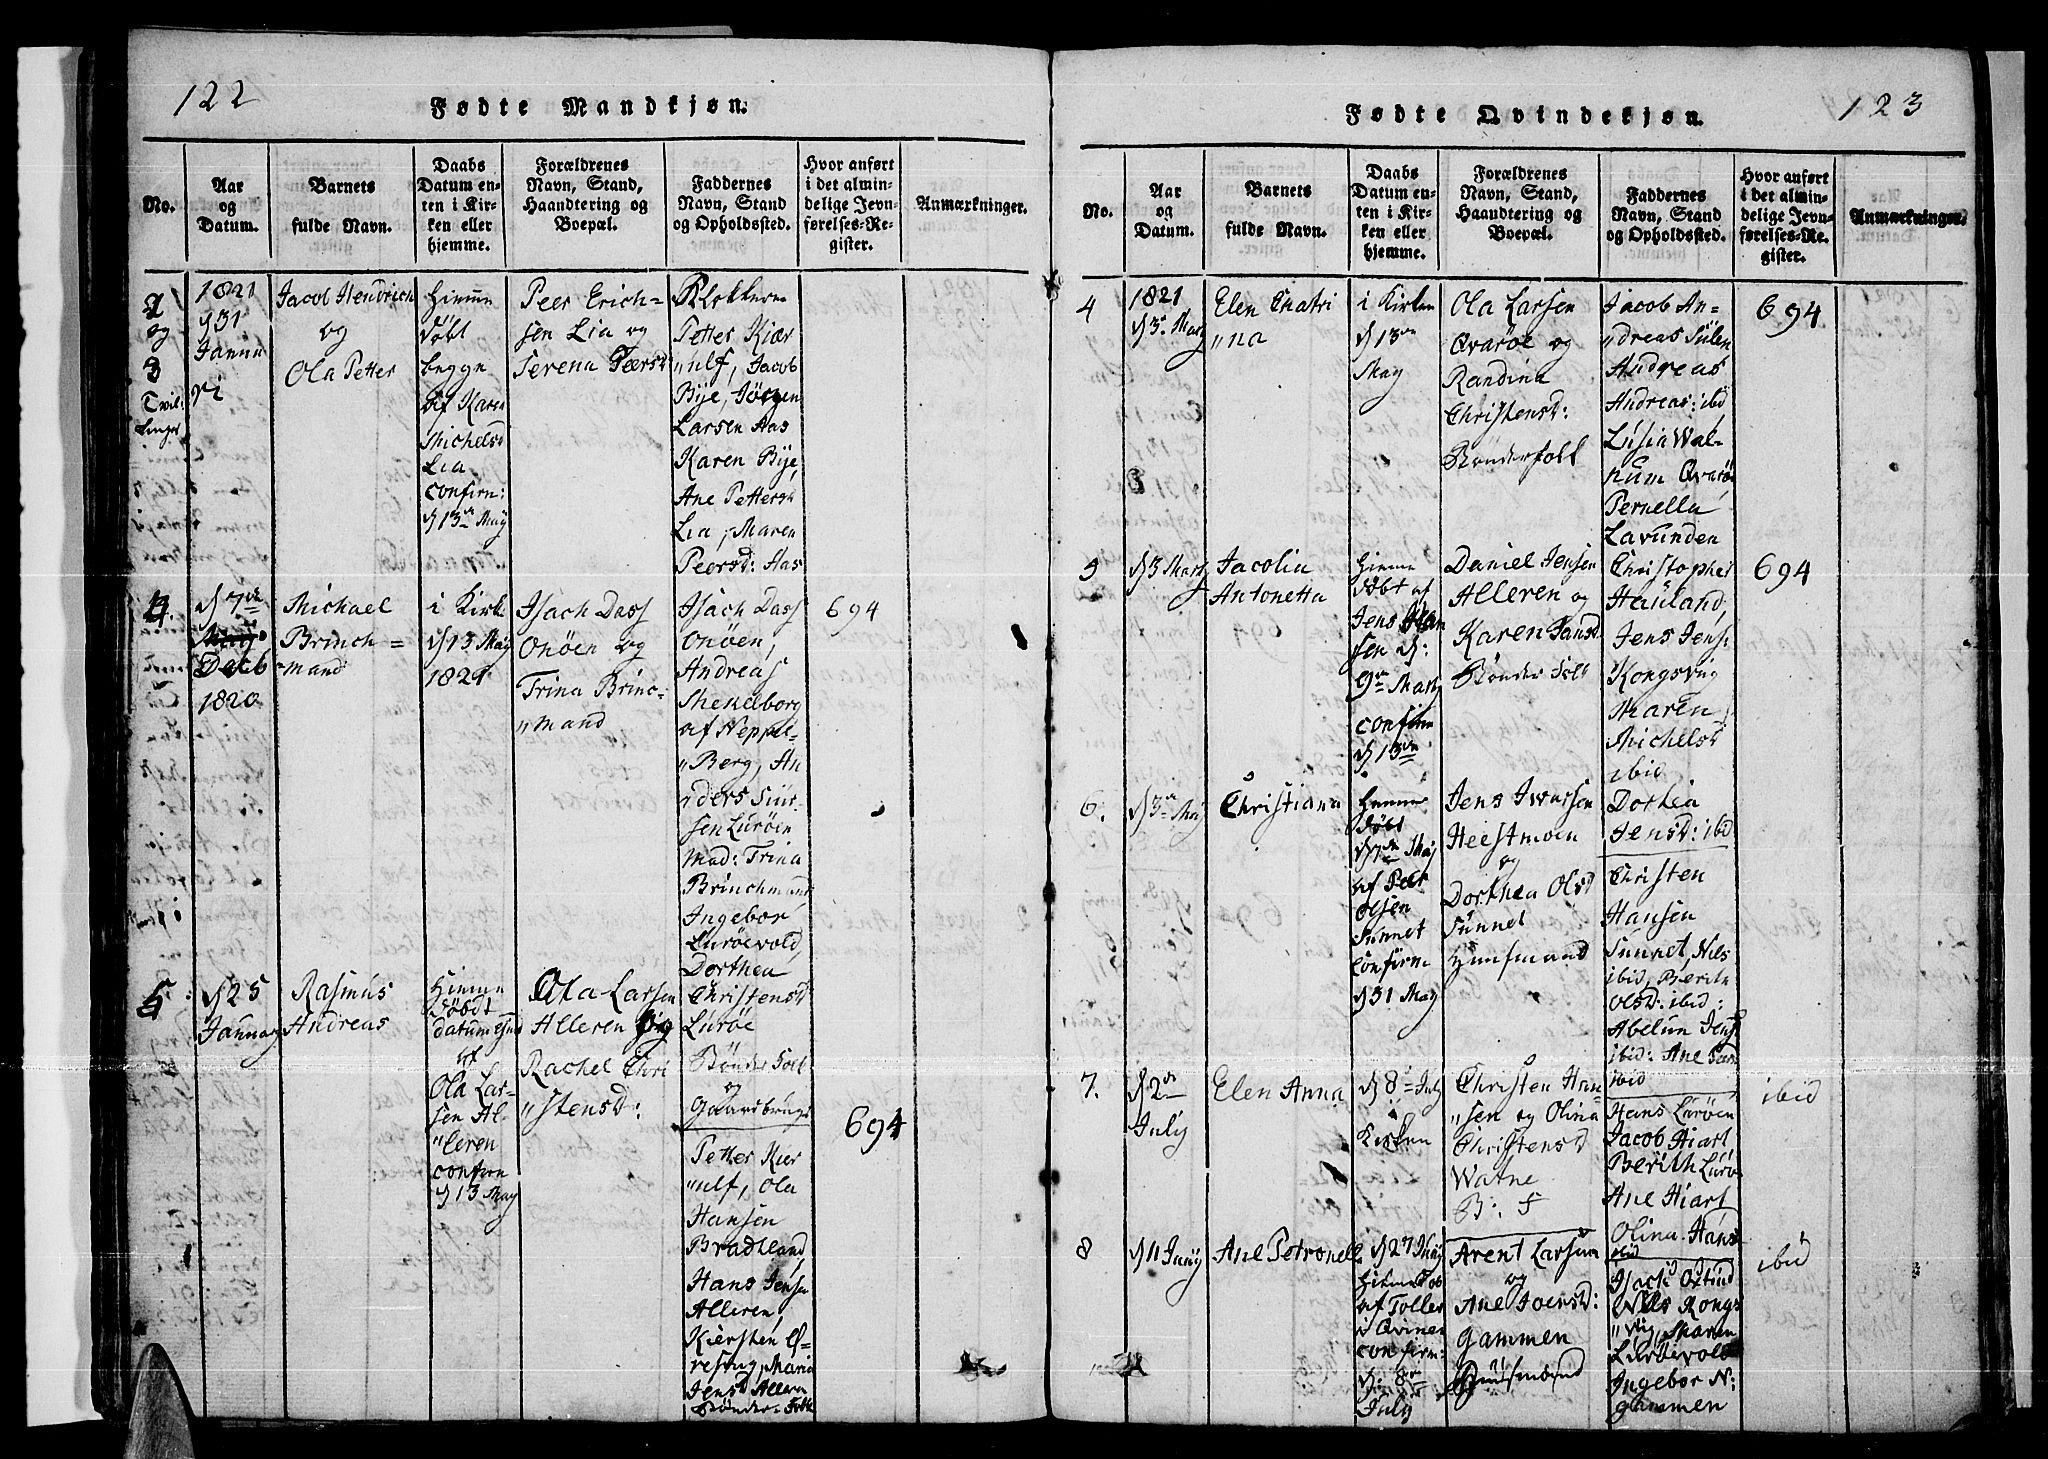 122
Fødte Mandkjøn.
No.
Aar
og
Datum.
Barnets
fulde Navn.
Daabs
Datum en-
ten i Kir-
ken eller
hjemme.
Forældrenes
Navn, Stand,
Haandtering og
Boepæl.
Faddernes
Navn, Stand
og Opholdssted.
Hvor anført
i det almin-
delige Jevn-
førelses-Re-
gister.
Anmærkninger.
2
og
3
Tvil-
linger
1821
d 31
Janua
ri
Jacob Hendrich
og
Ola Petter
Hiemme
døbt
begge
af Karen
Michelsd
Lia
confirm:
d 13de May
Peer Erich-
sen Lia og
Serena Peersd
Klokkeren
Petter Kiær
"ulf, Jacob
Bye, Jörgen
Larsen Aas
Karen Bye,
Ane Pettersd
Lia, Maren
Peersd: Aas
4.
d 7de
Decb
1820
Michael
Brinch=
-mand
i Kirk
d 13 May
1821
Isach Dass
Onöen og
Trina Brinc-
"mand
Isach Dass
Onöen,
Andreas
Mechelborg
af Neppel-
"Berg, An
"ders Siur-
sen Luröen
Mad: Trina
Brinchmand
Ingebor
Luröevold,
Dorthea
Christensd
Luröe
Bønder Folk
og
Gaardbrug
694
5
d 25
Januay
Rasmus
Andreas
Hiemme
döbdt
datum
af
Ola Lar-
sen Al-
"leren
confirm
d 13 May
Ola Larsen
Alleren og
Rachel Chri
"stensd:
Petter Kier
"ulf, Ola
Hansen
Bradland,
Hans Jensen
Alleren,
Kiersten Ø-
resing, Maria
Jensd Alleren
Bønder-Folk
694
123
Fødte Qvindekjøn.
No.
Aar
og
Datum.
Barnets
fulde Navn.
Daabs
Datum en-
ten i Kir-
ken eller
hjemme.
Forældrenes
Navn, Stand,
Haandtering og
Boepæl.
Faddernes
Navn, Stand
og Opholdssted.
Hvor anført
i det almin-
delige Jevn-
førelses-Re-
gister.
Anmærkninger.
4
1821
d 3 Marz
Elen Chatri
"na
i Kirken
d 13de
May
Ola Larsen
Qvaröe og
Randina
Christensd:
Bønderfolk
Jacob An-
"dreas Sülen
Andreas
Andreas: ibd
Lisia Wal-
num Qvaröe
Pernella
Lavunden
694
5
d 3 Marz
Jacolia
Antonetta
Hiemme
döbt af
Jens Han
sen d:
9de Marz
confirm
d 13de
Daniel Jensen
Alleren og
Karen Jansd
Bønder Folk
Christopher
Hauland,
Jens Jens:
Kongsvig
Maren
Michelsd
ibid
Dorthea
Jensd: ibd
694
6.
d 3de May
Christiana
Hiemme
döbt
d 7de May
af Peer
Olsen
Sunnet
Confirm
d 31 May
Jens Iwarsen
Heestmoen
og
Dorthea Olsd
Sunnet
Huusmand
Christen
Hansen
Sunnet, Nils
ibid, Berith
Olsd: ibid:
Abelun Jensd
ibid: Ane
ibid
7.
d 2de
July
Elen Anna
d 8de July
i
Kirken
Christen Han
"sen og Olina
Christensd
Watne
B: F
Hans Luröen
Jacob Hiart
Berith Luröe
Ane Hiart
Olina Hans
ibid
ibid
8
d 11 Juny
Ane Petronell
d 27 Juny
Hiemme Dob
af Tollev
i Qvinen
confirm:
d: 8de
July
Arent Larsen
og
Ane Joensd:
Gammen
Huusmand
Isach
Nils Kongs
"vig, Maren
Luröevold
Ingebor N:
Gammen
ibid